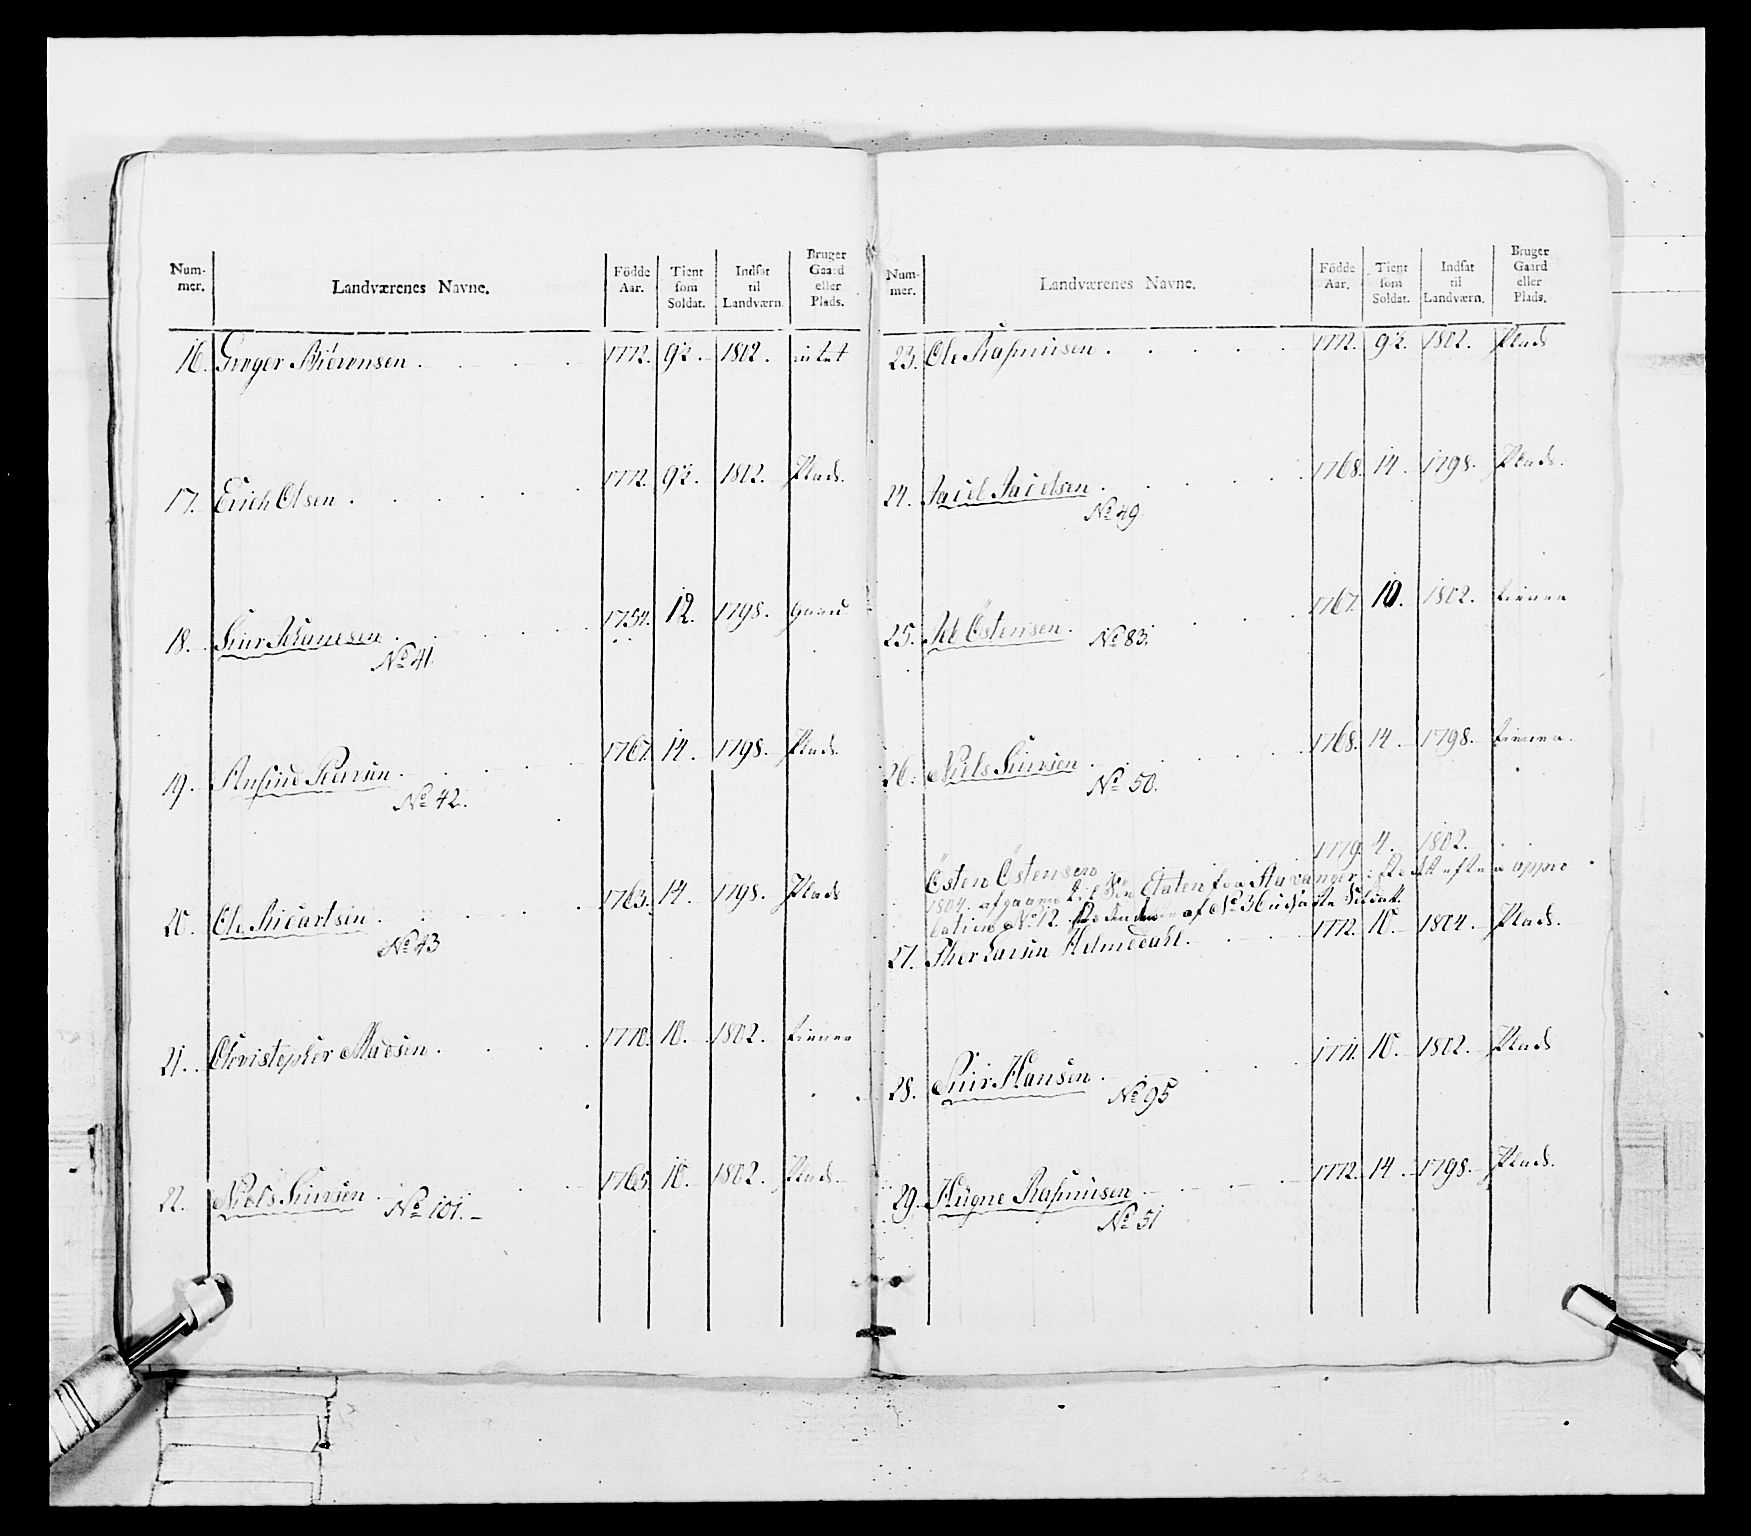 Num-
mer.
Landværenes Navne.
Födde
Aar.
Tient
som
Soldat.
Indsat
til
Landværn.
Bruger
Gaard
eller
Plads.
16. Greger Biörensen . 1772. 9½. 1802. intet
17. Erich Olsen . 1772. 9½. 1802. Plads.
18. Siur Johanesen . 1754. 12. 1798. gaard
No 41.
19. Peersen . 1767. 14. 1798. Plads.
No 42.
20. Ole . 1763. 14. 1798. Plads
No 43
21. Christopher Madsen . 1770. 10. 1802. tiener
22. Niels Siursen . 1765. 10. 1802. Plads
No 101.
Num-
mer.
Landværenes Navne.
Födde
Aar.
Tient
som
Soldat.
Indsat
til
Landværn.
Bruger
Gaard
eller
Plads.
23. Ole Rasmusen . 1772. 9½. 1802. Plads
24. . 1768. 14. 1798. Plads.
No 49
25. Östensen . 1767. 10. 1802. tiener
No 83.
26. Niels Siursen . 1768. 14. 1798. tiener.
No 50.
1779. 4. 1802.
Östen Östensen
1804. afgaaen til Söe Etaten for Stavanger
No 12. af No 36 udsatte Soldat
27. Ther Larsen Helmedahl. 1772. 10. 1804. Plads.
28. Siur Hansen . 1771. 10. 1802. Plads
No 95
29. Hügne Rasmusen 1772. 14. 1798. Plads.
No 51